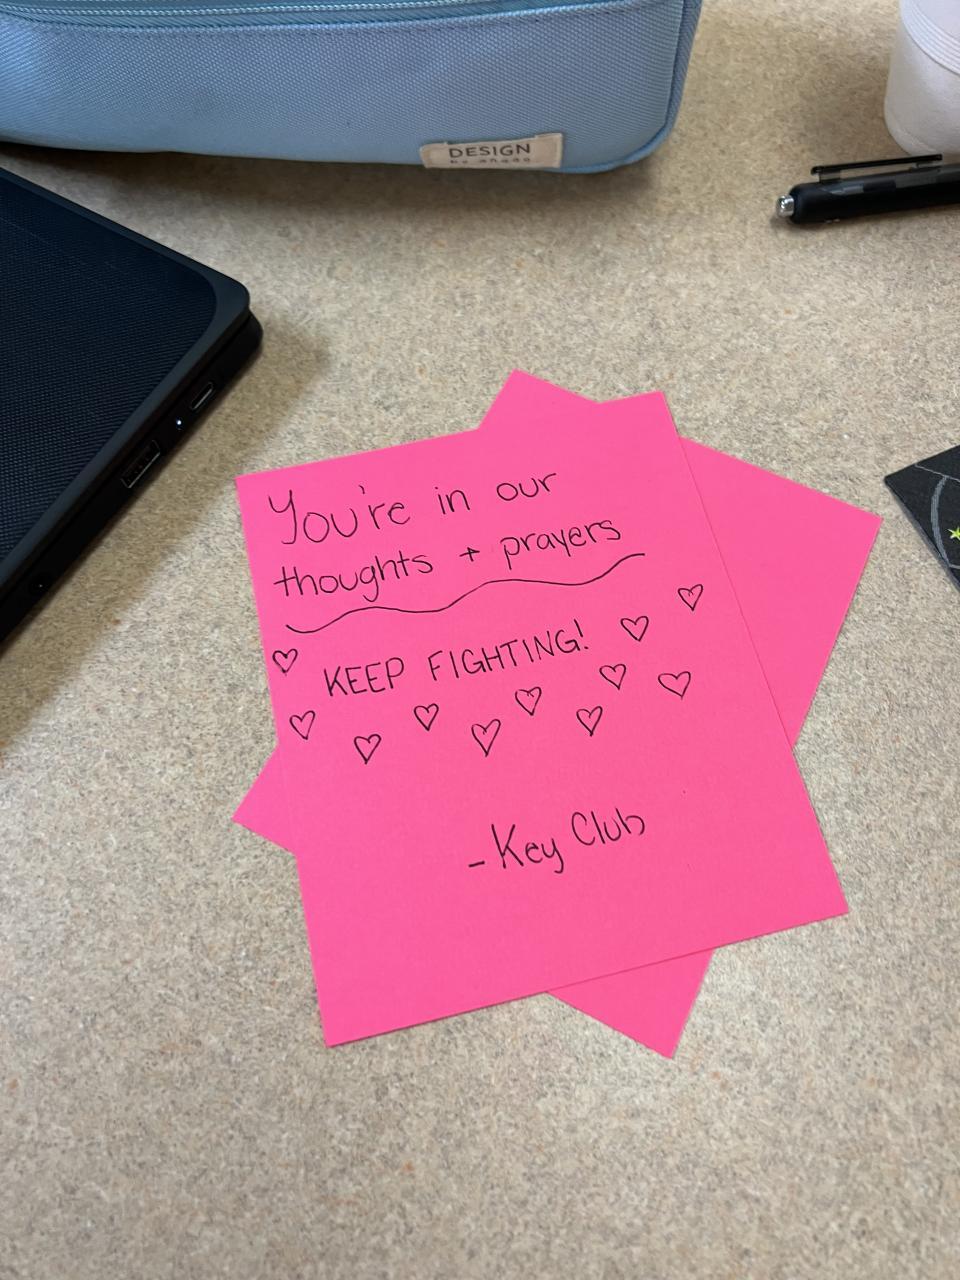 DESIGN
You're in our
thoughts + prayers
KEEP FIGHTING!
- Key Club